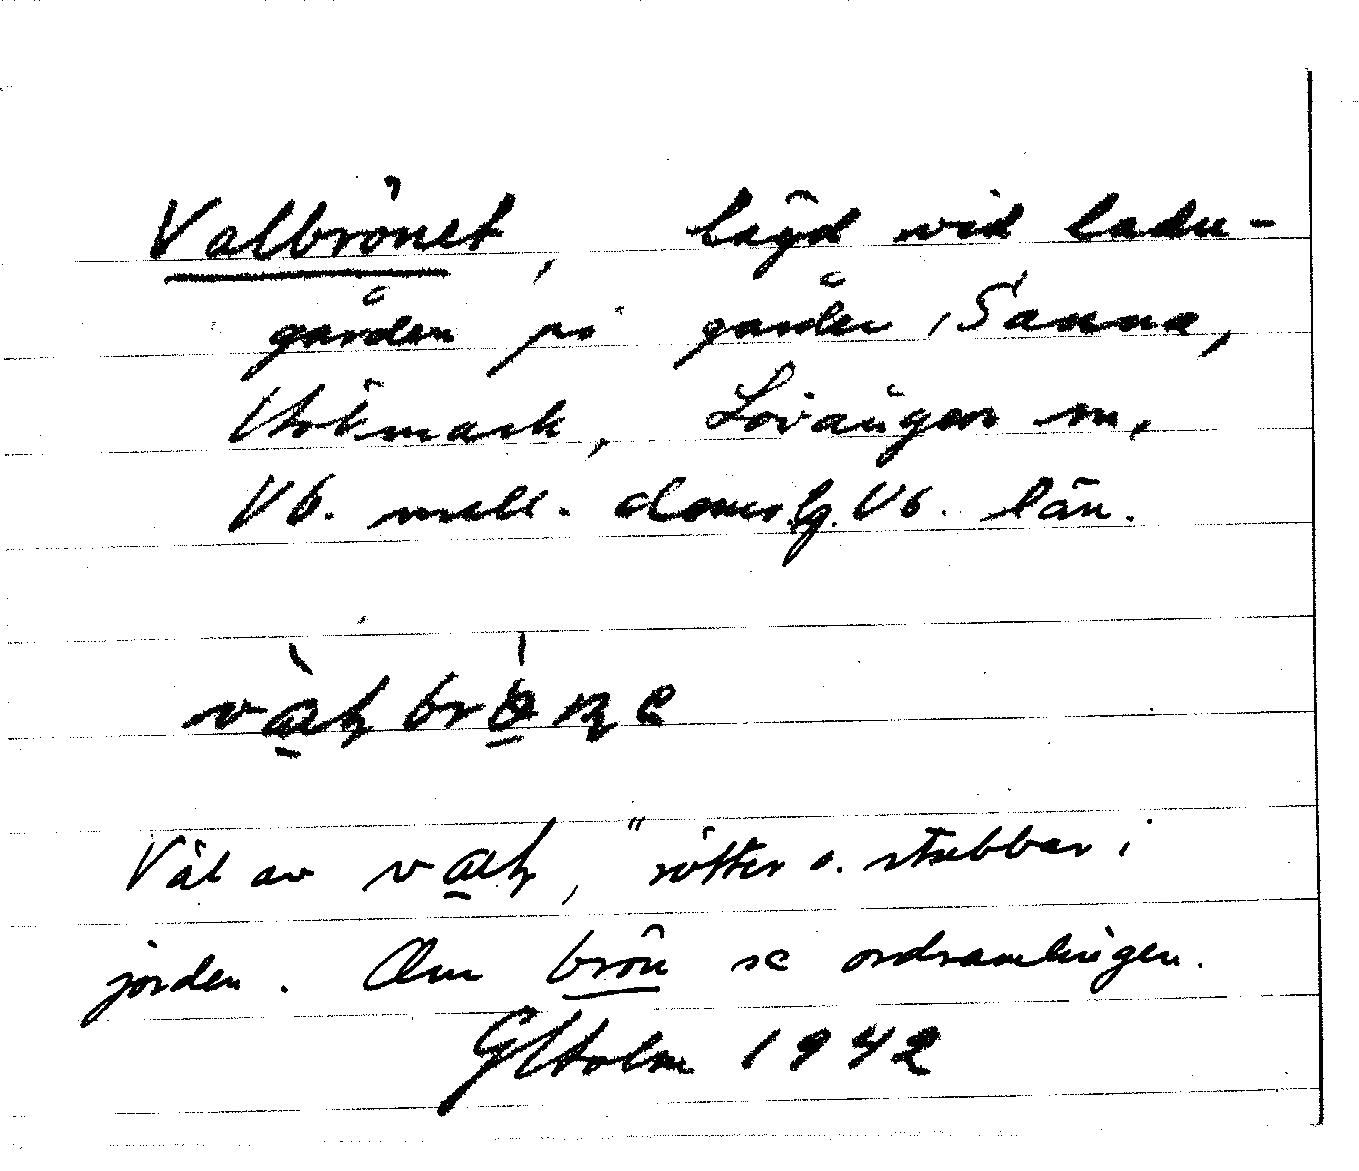 Valbrönet, lägd vid ladu-
gården på gården Sanna,
Hökmark, Lövångers sn,
Vb. mell. doms.g. Vb. län.
Väl av "rötter o. stubbar i
jorden. Om brön se ordsamlingen.
GHolm 1942